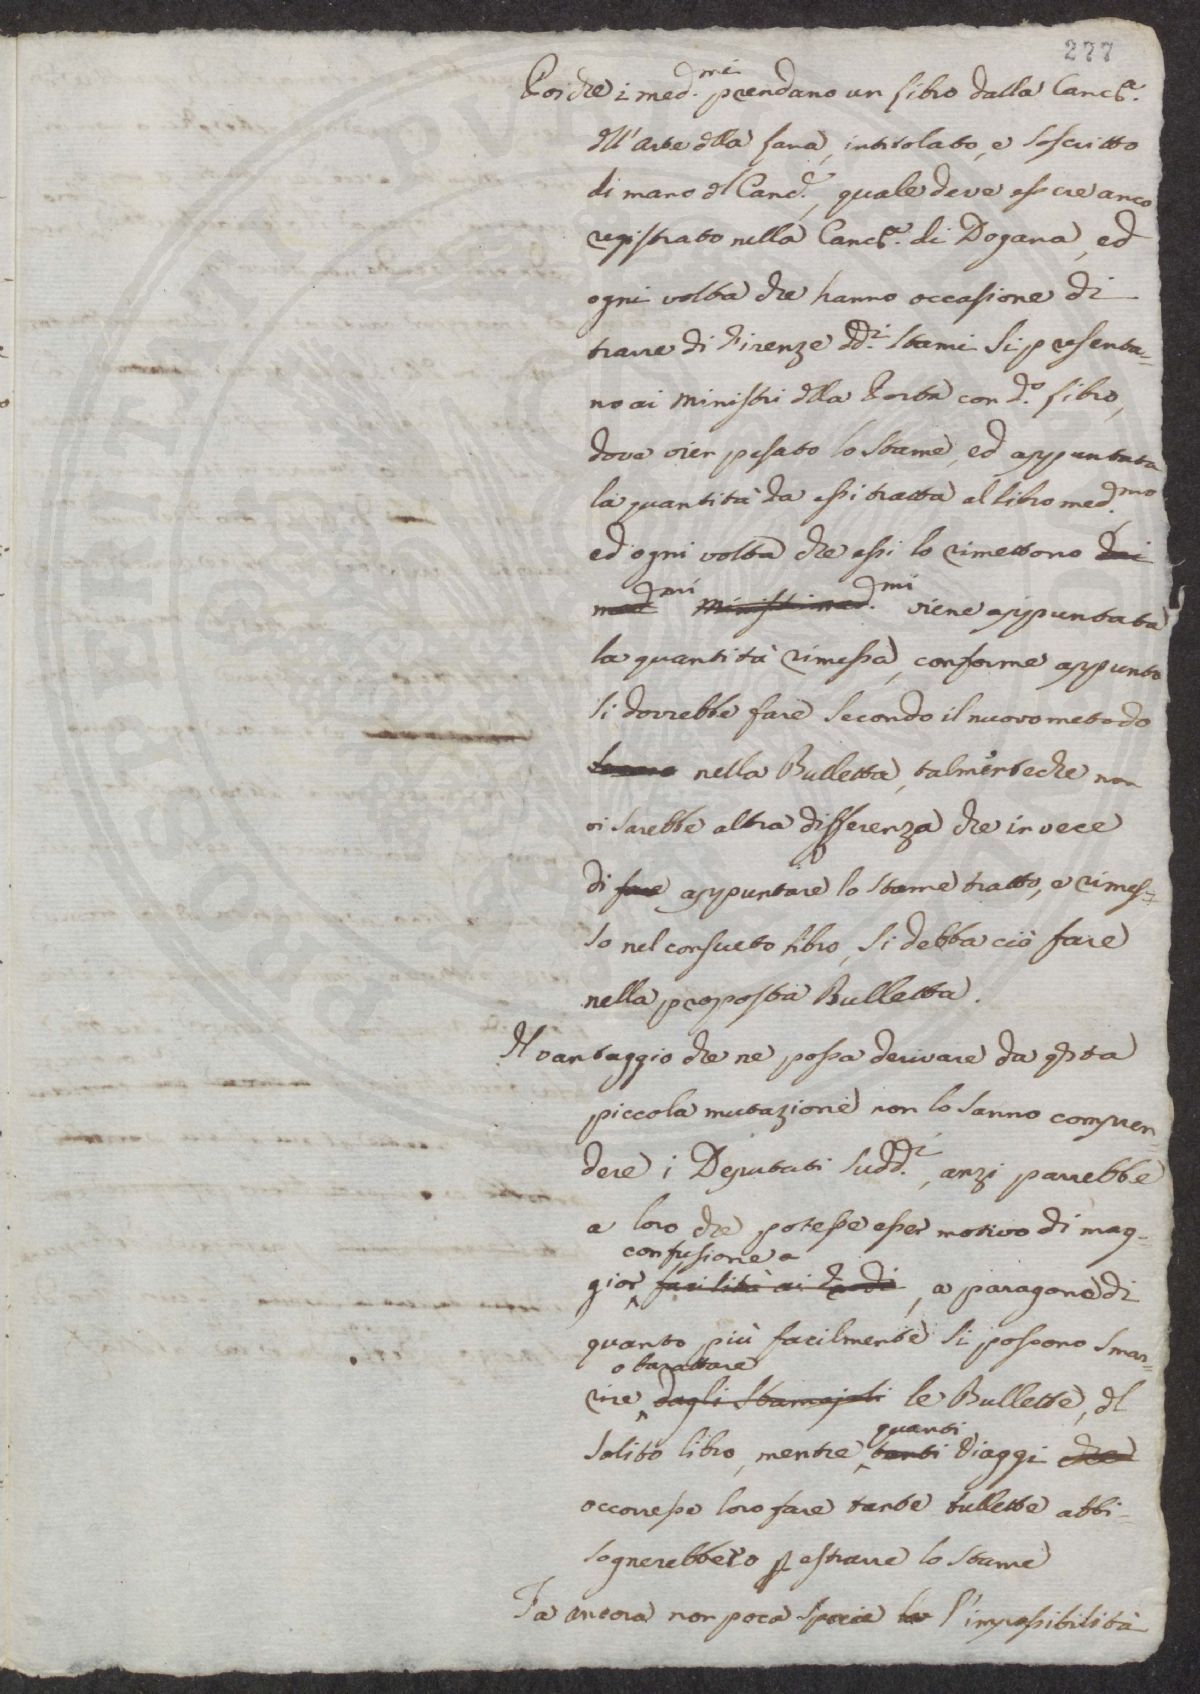 277
Poiche i med.mi prendano un libro dalla Canc.a
dll'Arte dlla lana, intitolato, e soscritto
di mano dl Canc.e, quale deve essere anco
registrato nella Canc.a di Dogana, ed
ogni volta che hanno occasione di
trarre di Firenze dd.i stami si presenta-
no ai Ministri dlla Porta con d.o libro,
dove vien pesato lo stame, ed appuntata
la quantità da essi tratta al libro med.mo
ed ogni volta che essi lo rimettono dai
med.mi Ministri med.mi viene appuntata
la quantità rimessa, conforme appunto
si dovrebbe fare secondo il nuovo metodo
nella Bulletta, talmente che non
vi sarebbe altra differenza che in vece
di fare appuntare lo stame tratto, e rimes-
so nel consueto libro, si debba ciò fare
nella proposta Bulletta.
Il vantaggio che ne possa derivare da qsta
piccola mutazione non lo sanno compren-
dere i Deputati sudd.i, anzi parrebbe
a loro che potesse esser motivo di mag-
confusione
gior facilità ai, a paragone di
quanto più facilmente si possono smar-
o barattare
rire dagli Stamajoli le Bullette, dl
quanti
solito libro, mentre tanti viaggi che
occorresse loro fare tante bullette abbi-
sognerebbero p estrarre lo stame
Fa ancora non poca specie la l'impossibilità